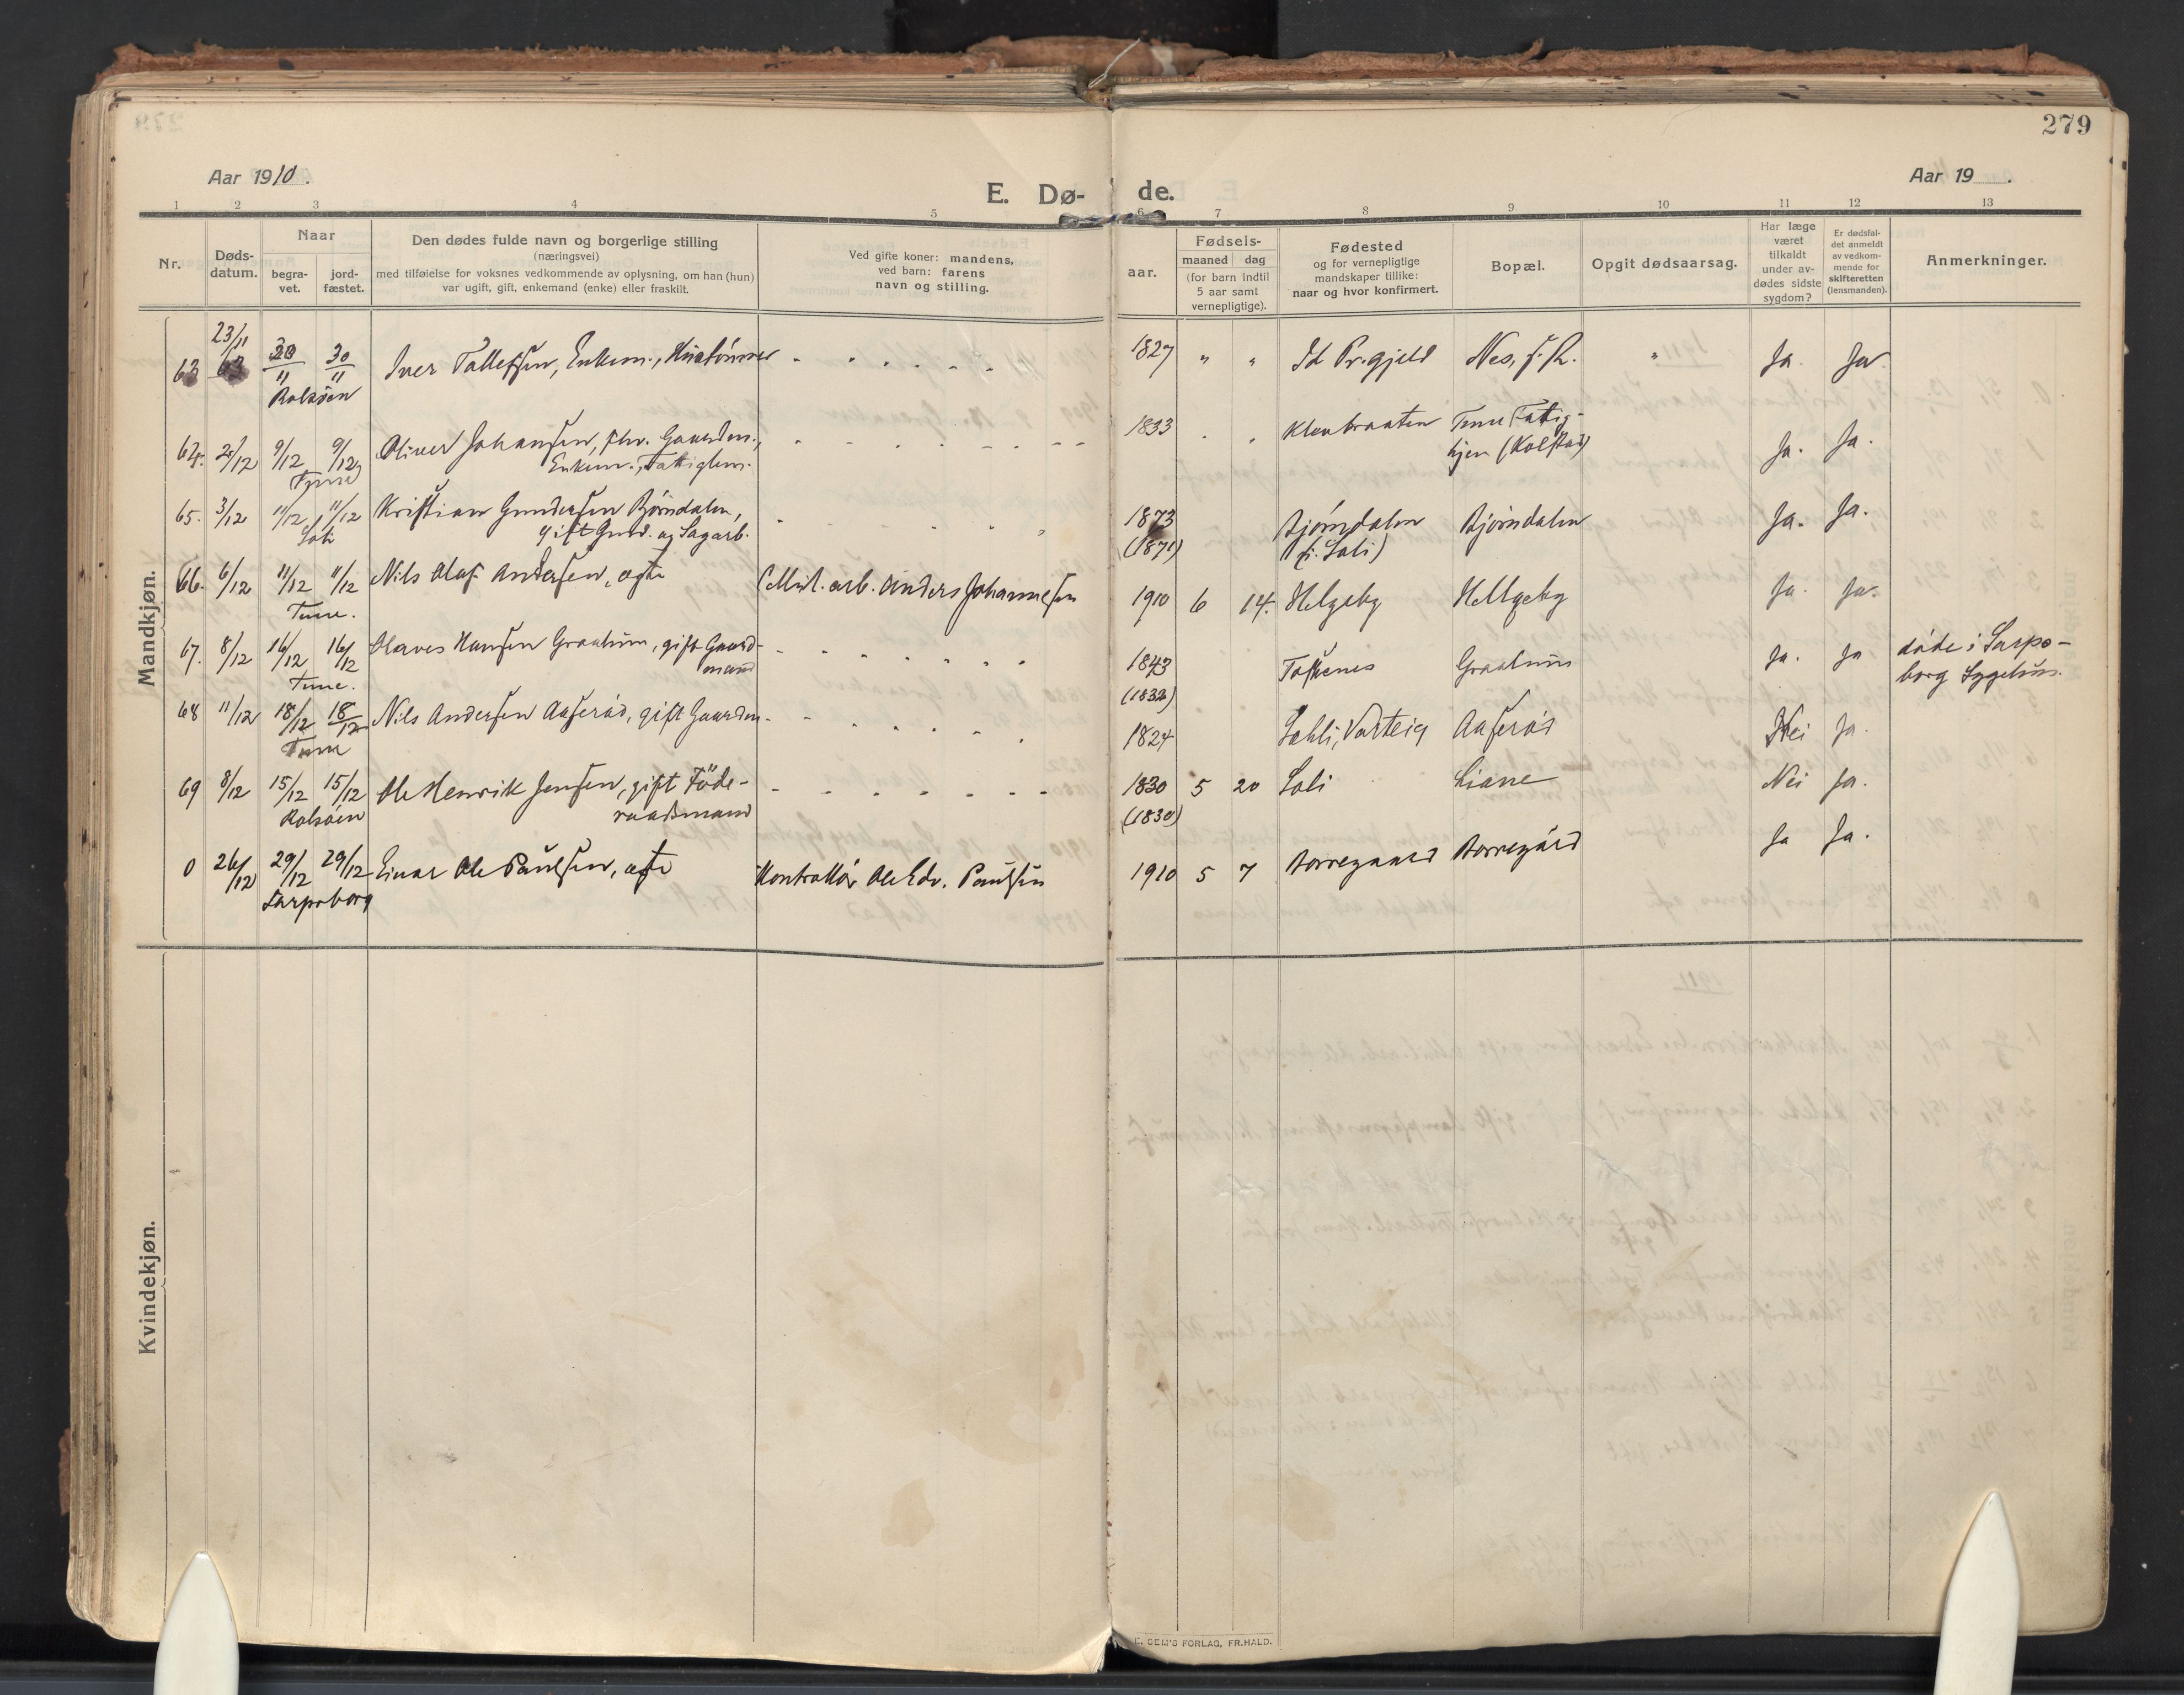 279
Aar 1910.
E. Dø-
de.
Aar 19 .
1 2 3 4 5 6 7 8 9 10 11 12 13
Nr.
Døds-
datum.
Naar
begra-
vet.
jord-
fæstet.
Den dødes fulde navn og borgerlige stilling
(næringsvei)
med tilføielse for voksnes vedkommende av oplysning, om han (hun)
var ugift, gift, enkemand (enke) eller fraskilt.
Ved gifte koner: mandens,
ved barn: farens
navn og stilling.
aar.
Fødsels-
maaned dag
(for barn indtil
5 aar samt
vernepligtige).
Fødested
og for vernepligtige
mandskaper tillike:
naar og hvor konfirmert.
Bopæl.
Opgit dødsaarsag.
Har læge
været
tilkaldt
under av-
dødes sidste
sygdom?
Er dødsfal-
det anmeldt
av vedkom-
mende for
skifteretten
(lensmanden).
Anmerkninger.
Mandkjøn.
63 23/11 30/11 30/11 Iver Tollefsen, Enkem., Hustømmer - - - - - 1827 " " Id Pr.gjeld Nes, " Ja. Ja
Rolsøen
64. 2/12 9/12 9/12 Oliver Johansen, fhv. Gaardm., - - - - - 1833 . . Klevbraaten Tune Fattig-
Tune Enkem., Fattiglem. hjem (Kolstad) Ja. Ja.
65. 3/12 11/12 11/12 Kristian Gundersen Bjørndalen, 1873 Bjørndalen Bjørndalen Ja. Ja.
Soli gift Gmd. og Sagarb. (1871) (i. Soli)
66. 6/12 11/12 11/12 Nils Olaf Andersen, ægte Anders Johannesen 1910 6 14. Helgeby Hellgeby Ja. Ja.
Tune.
67. 8/12 16/12 16/12 Hansen Graalum, gift Gaard- - - - - - 1843 Graalum Ja. Ja døde i Sarps-
Tune. mand (1832) borg Sygehus.
68 11/12 18/12 18/12 Nils Andersen Aaserød, gift Gaardm. - - - - - 1824 Varteig Aaserød Nei Ja.
Tune
69 8/12 15/12 15/12 Ole Henrik Jensen, gift Føde- - - - - - - 1830 5 20 Soli Liane Nei Ja.
Rolsøen raadsmand (1830)
0 26/12 29/12 29/12 Einar Ole Paulsen, ægte Kontrollør Ole Edv. Paulsen 1910 5 7 Borregaard Borregård Ja Ja.
Sarpsborg
Kvindekjøn.
E. SEM'S FORLAG, FR.HALD.